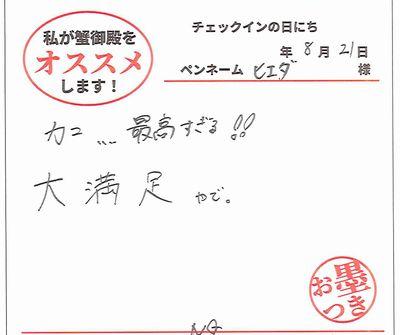 私が蟹御殿を
オススメ
します！
チェックインの日にち
年 8月21日
ペンネーム ヒエダ 様
カニ....最高すぎる!!
大満足やで。
お墨
つき